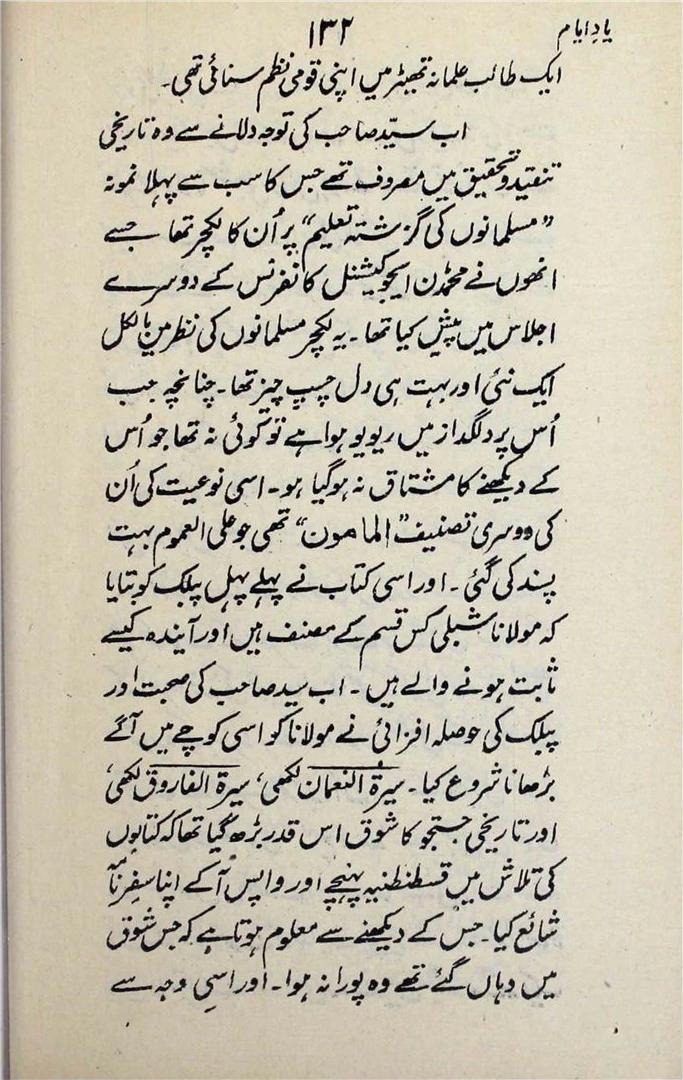 یادِ ایام
۱۳۲
ایک طالب علمانہ تھیٹر میں اپنی قومی نظم سنائی تھی۔
اب سیّد صاحب کی توجہ دلانے سے وہ تاریخی
تنقید و تحقیق میں مصروف تھے جس کا سب سے پہلا نمونہ
”مسلمانوں کی گزشتہ تعلیم“ پر اُن کا لکچر تھا جسے
انھوں نے محمڈن ایجوکیشنل کانفرنس کے دوسرے
اجلاس میں پیش کیا تھا۔ یہ لکچر مسلمانوں کی نظر میں بالکل
ایک نئی اور بہت ہی دل چسپ چیز تھا۔ چنانچہ جب
اُس پر دلگداز میں ریویو ہوا ہے تو کوئی نہ تھا جو اُس
کے دیکھنے کا مشتاق نہ ہو گیا ہو۔ اسی نوعیت کی اُن
کی دوسری تصنیف ”المامون“ تھی جو علی العموم بہت
پسند کی گئی۔ اور اسی کتاب نے پہلے پہل پبلک کو بتایا
کہ مولانا شبلی کس قسم کے مصنف ہیں اور آیندہ کیسے
ثابت ہونے والے ہیں۔ اب سید صاحب کی صحبت اور
پبلک کی حوصلہ افزائی نے مولانا کو اسی کوچے میں آگے
بڑھانا شروع کیا۔ سیرۃ النعمان لکھی، سیرۃ الفاروق لکھی،
اور تاریخی جستجو کا شوق اس قدر بڑھ گیا تھا کہ کتابوں
کی تلاش میں قسطنطنیہ پہنچے اور واپس آکے اپنا سفرنامہ
شائع کیا۔ جس کے دیکھنے سے معلوم ہوتا ہے کہ جس شوق
میں وہاں گئے تھے وہ پورا نہ ہوا۔ اور اسی وجہ سے